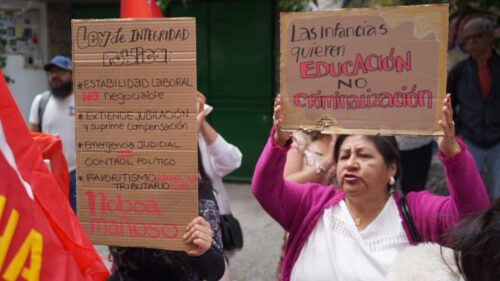 Ley de INTEGRIDAD
PÚBLICA:
*ESTABILIDAD LABORAL
NO negociable
*EXTIENDE JUBILACIÓN
y suprime compensación
*Emergencia JUDICIAL
CONTROL POLÍTICO
*FAVORITISMO
TRIBUTARIO
Noboa
Mañoso
Las Infancias
quieren
EDUCACIÓN
NO
criminalización